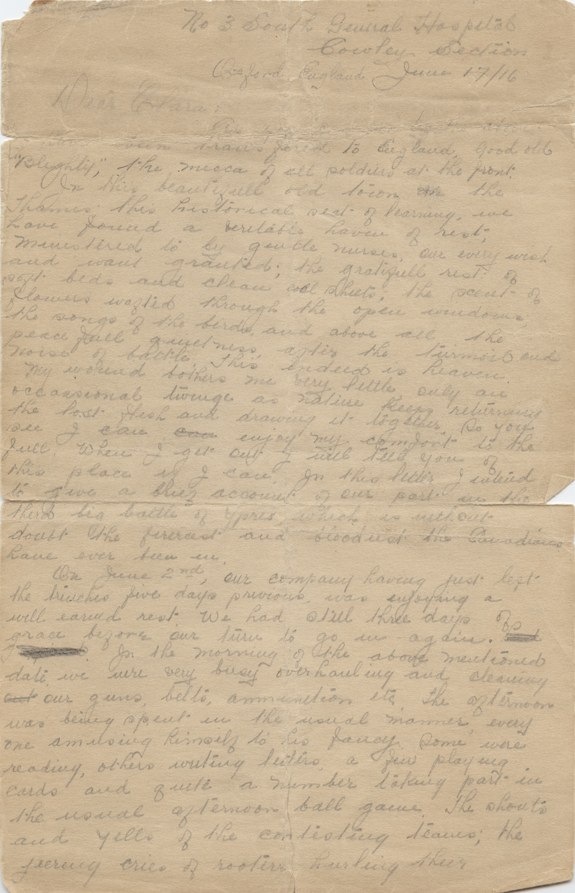 No 3 South General Hospital
Cowley Section
Oxford England June 17/16
Dear Clara:
been transfered to England, good old
"Blighty", the mecca of all soldiers at the front.
In this beautifull old town on the
Thames; this historical seat of learning, we
have found a veritable haven of rest;
ministired to by gentle nurses, our every wish
and want granted; the gratifull rest of
soft beds and clean cool sheets; the scent of
flowers wafted through the open windows
the songs of the birds, and above all the
peacefull quietness, after the turmoil and
noise of battle. This indeed is heaven.
My wound bothers me very little only an
occassional twinge as nature keeps returning
the lost flesh and drawing it together. So you
see I can can enjoy my comfort to the
full. When I get out I will tell you of
this place if I can. In this letter I intend
to give a brief account of our part in the
third big battle of Ypres, which is without
doubt the fiercest and bloodiest the Canadians
have ever been in.
On June 2nd, our company having just left
the trenches five days previous, was enjoying a
well earned rest. We had still three days of
grace before our turn to go in again.
In the morning of the above mentioned
date, we were very busy overhauling and cleaning
our guns, belts, ammunition etc, the afternoon
was being spent in the usual manner, every
one amusing himself to his fancy. Some were
reading, others writing letters, a few playing
cards and quite a number taking part in
the usual afternoon ball game. The shouts
and yells of the contesting teams; the
jeering cries of rooters hurling their